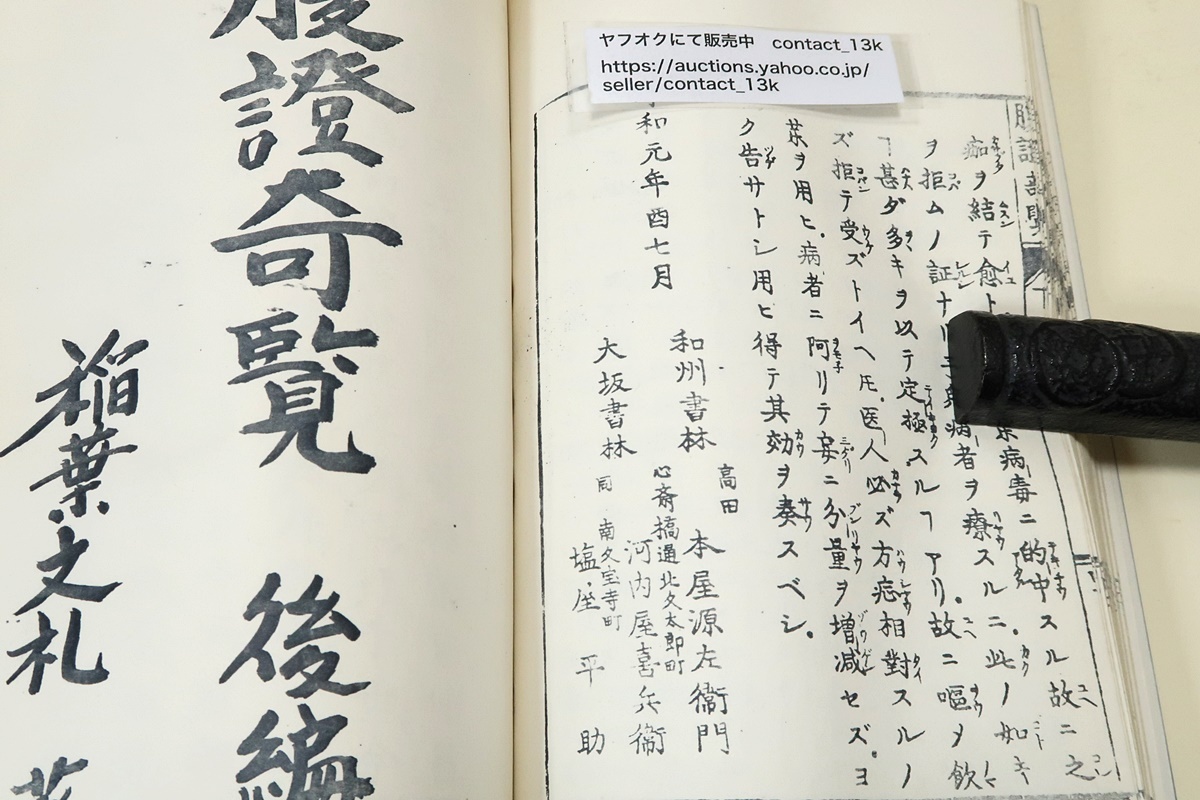 ヤフオクにて販売中 contact_13k
https://auctions.yahoo.co.jp/
seller/contact_13k
痂ヲ結テ愈ト
病毒ニ的中スル故ニ之
ヲ拒ムノ証ナリ
病者ヲ療スルニ此ノ如キ
ヿ甚ダ多キヲ以テ定極スルヿアリ故ニ嘔ヲ飲
ズ拒テ受ズトイヘ𪜈医人必ズ方症相對スルノ
薬ヲ用ヒ病者ニ阿リテ妄ニ分量ヲ増減セズヨ
ク告サトシ用ヒ得テ其効ヲ奏スベシ
和元年酉七月
和州書林
高田
本屋源左衛門
大坂書林
心斎橋通北久太郎町
河内屋喜兵衛
同
南久宝寺町
塩屋平助
證奇覧 後編
稲葉文礼